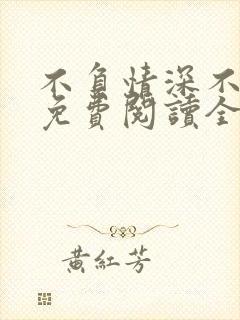 不負情深不
免費閱讀全
黃紅芳